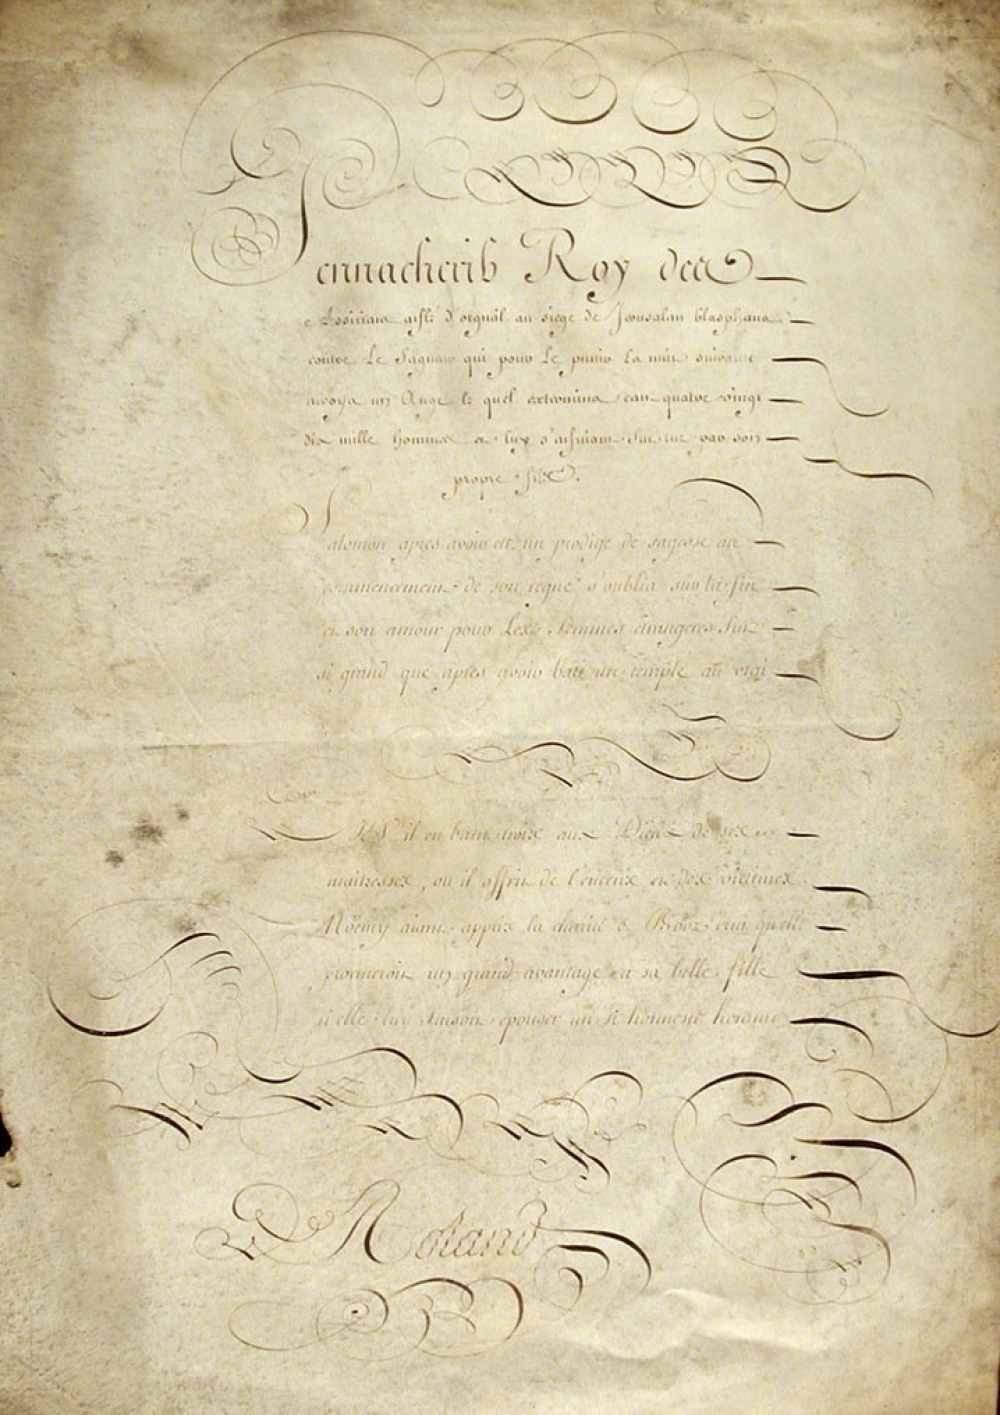 Sennacherib Roy des
Assiriens aisle d'orgueil au siege de Jerusalem blasphema
contre Le Seigneur qui pour Le punir La nuit suivante
envoya un Ange le quel extermina cent quatre vingt
dix mille hommes et luy s'enfuiant fut tué par son
propre fils.
Salomon apres avoir eté un prodige de sagesse au
commencement de son regne s'oublia sur la fin
et son amour pour Les femmes étrangeres fut
si grand que apres avoir bati un temple au vrai
il en batit trois aux Dieux de ses
maitresses, ou il offrit de l'encens et des victimes
Noemy aiant appris la charité de Booz crut qu'elle
procureroit un grand avantage a sa belle fille
si elle luy faisoit epouser un si honneste homme
Roland